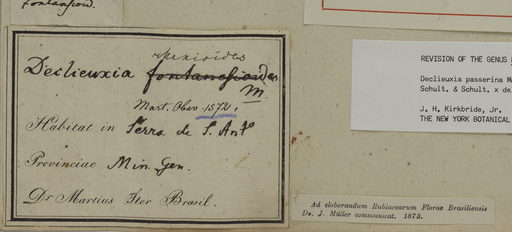 fontanesioid.
rhexioides
Declieuxia fontanesioides
M.
Mart. Obsv. 1572.
Habitat in Serra de S. Antº
Provinciae Min. Gen.
Dr Martius Iter Brasil.
REVISION OF THE GENUS
Declieuxia passerina M
Schult. & Schult. x de
J. H. Kirkbride, Jr.
THE NEW YORK BOTANICAL
Ad elaborandum Rubiacearum Florae Brasiliensis
Do. J. Müller communicat. 1873.